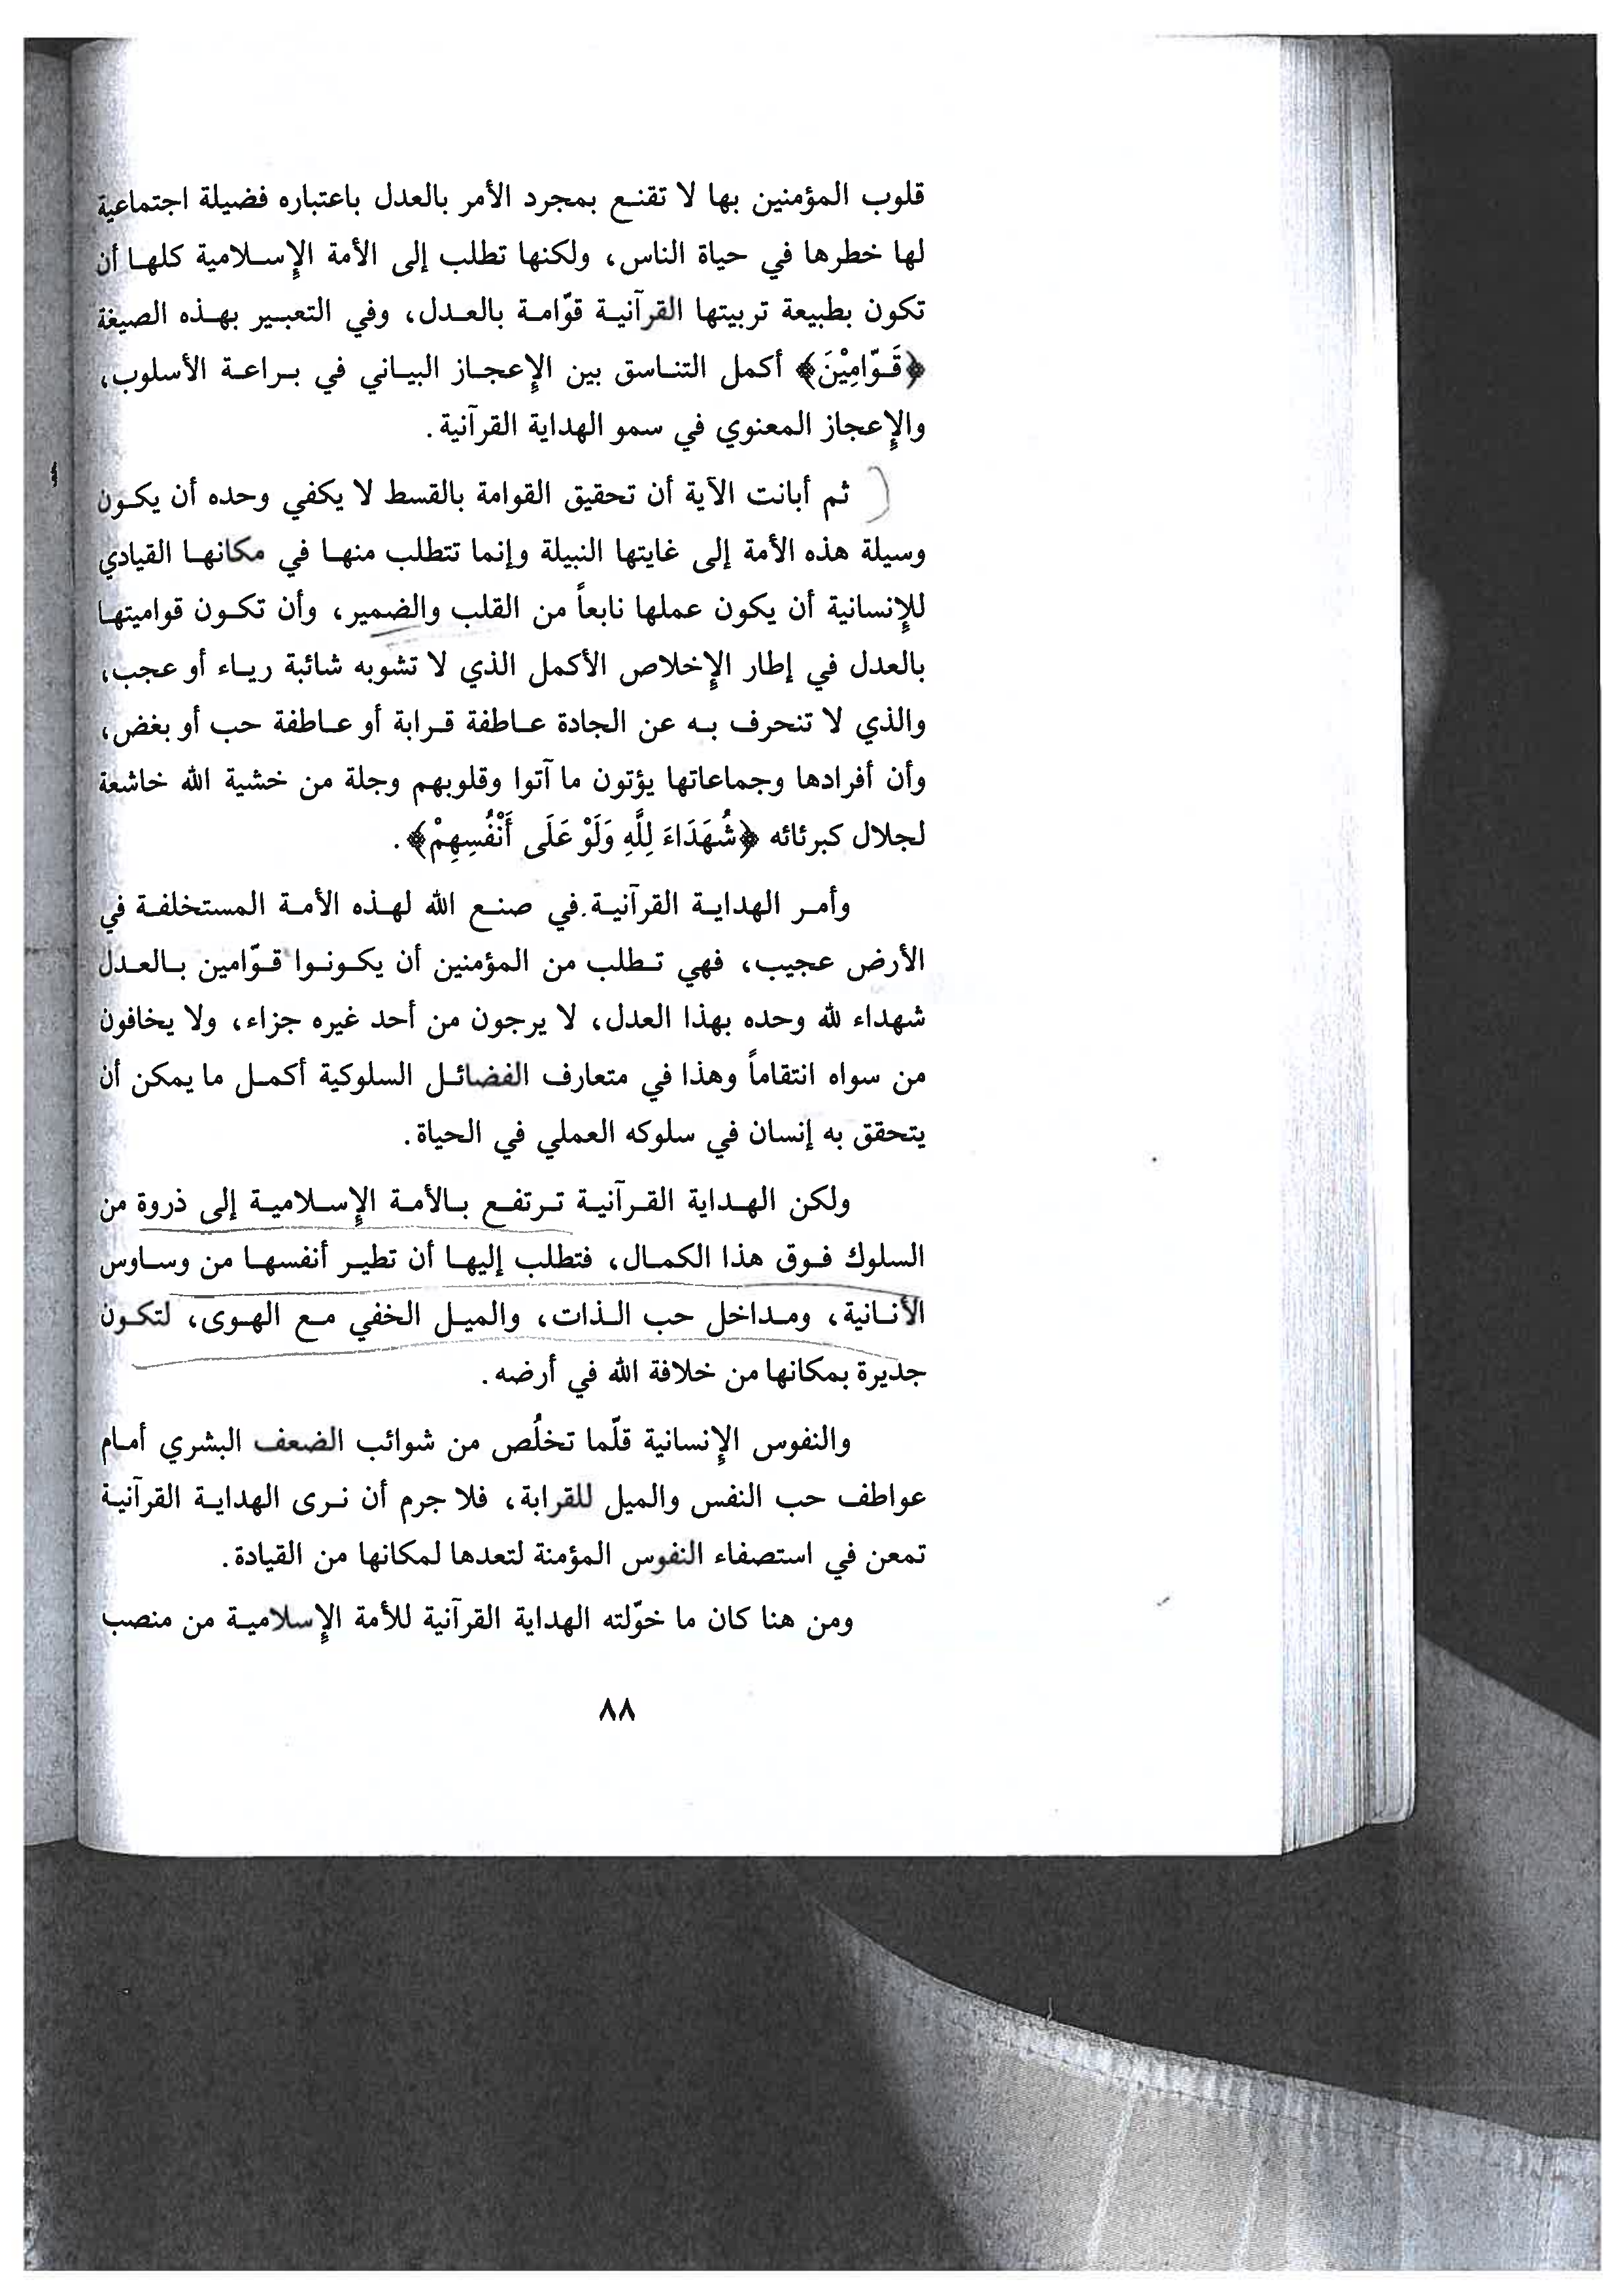 قلوب المؤمنين بها لا تقنع بمجرد الأمر بالعدل باعتباره فضيلة اجتماعية
لها خطرها في حياة الناس، ولكنها تطلب إلى الأمة الإسلامية كلها أن
تكون بطبيعة تربيتها القرآنية قوّامة بالعدل، وفي التعبير بهذه الصيغة
﴿قَوّامِيْنَ﴾ أكمل التناسق بين الإعجاز البياني في براعة الأسلوب،
والإعجاز المعنوي في سمو الهداية القرآنية.
ثم أبانت الآية أن تحقيق القوامة بالقسط لا يكفي وحده أن يكون
وسيلة هذه الأمة إلى غايتها النبيلة وإنما تتطلب منها في مكانها القيادي
للإنسانية أن يكون عملها نابعاً من القلب والضمير، وأن تكون قواميتها
بالعدل في إطار الإخلاص الأكمل الذي لا تشوبه شائبة رياء أو عجب،
والذي لا تنحرف به عن الجادة عاطفة قرابة أو عاطفة حب أو بغض،
وأن أفرادها وجماعاتها يؤتون ما آتوا وقلوبهم وجلة من خشية الله خاشعة
لجلال كبرئائه ﴿شُهَدَاءَ لِلَّهِ وَلَوْ عَلَى أَنْفُسِهِمْ﴾.
وأمر الهداية القرآنية في صنع الله لهذه الأمة المستخلفة في
الأرض عجيب، فهي تطلب من المؤمنين أن يكونوا قوّامين بالعدل
شهداء لله وحده بهذا العدل، لا يرجون من أحد غيره جزاء، ولا يخافون
من سواه انتقاماً وهذا في متعارف الفضائل السلوكية أكمل ما يمكن أن
يتحقق به إنسان في سلوكه العملي في الحياة.
ولكن الهداية القرآنية ترتفع بالأمة الإسلامية إلى ذروة من
السلوك فوق هذا الكمال، فتطلب إليها أن تطير أنفسها من وساوس
الأنانية، ومداخل حب الذات، والميل الخفي مع الهوى، لتكون
جديرة بمكانها من خلافة الله في أرضه.
والنفوس الإنسانية قلّما تخلُص من شوائب الضعف البشري أمام
عواطف حب النفس والميل للقرابة، فلا جرم أن نرى الهداية القرآنية
تمعن في استصفاء النفوس المؤمنة لتعدها لمكانها من القيادة.
ومن هنا كان ما خوّلته الهداية القرآنية للأمة الإسلامية من منصب
٨٨